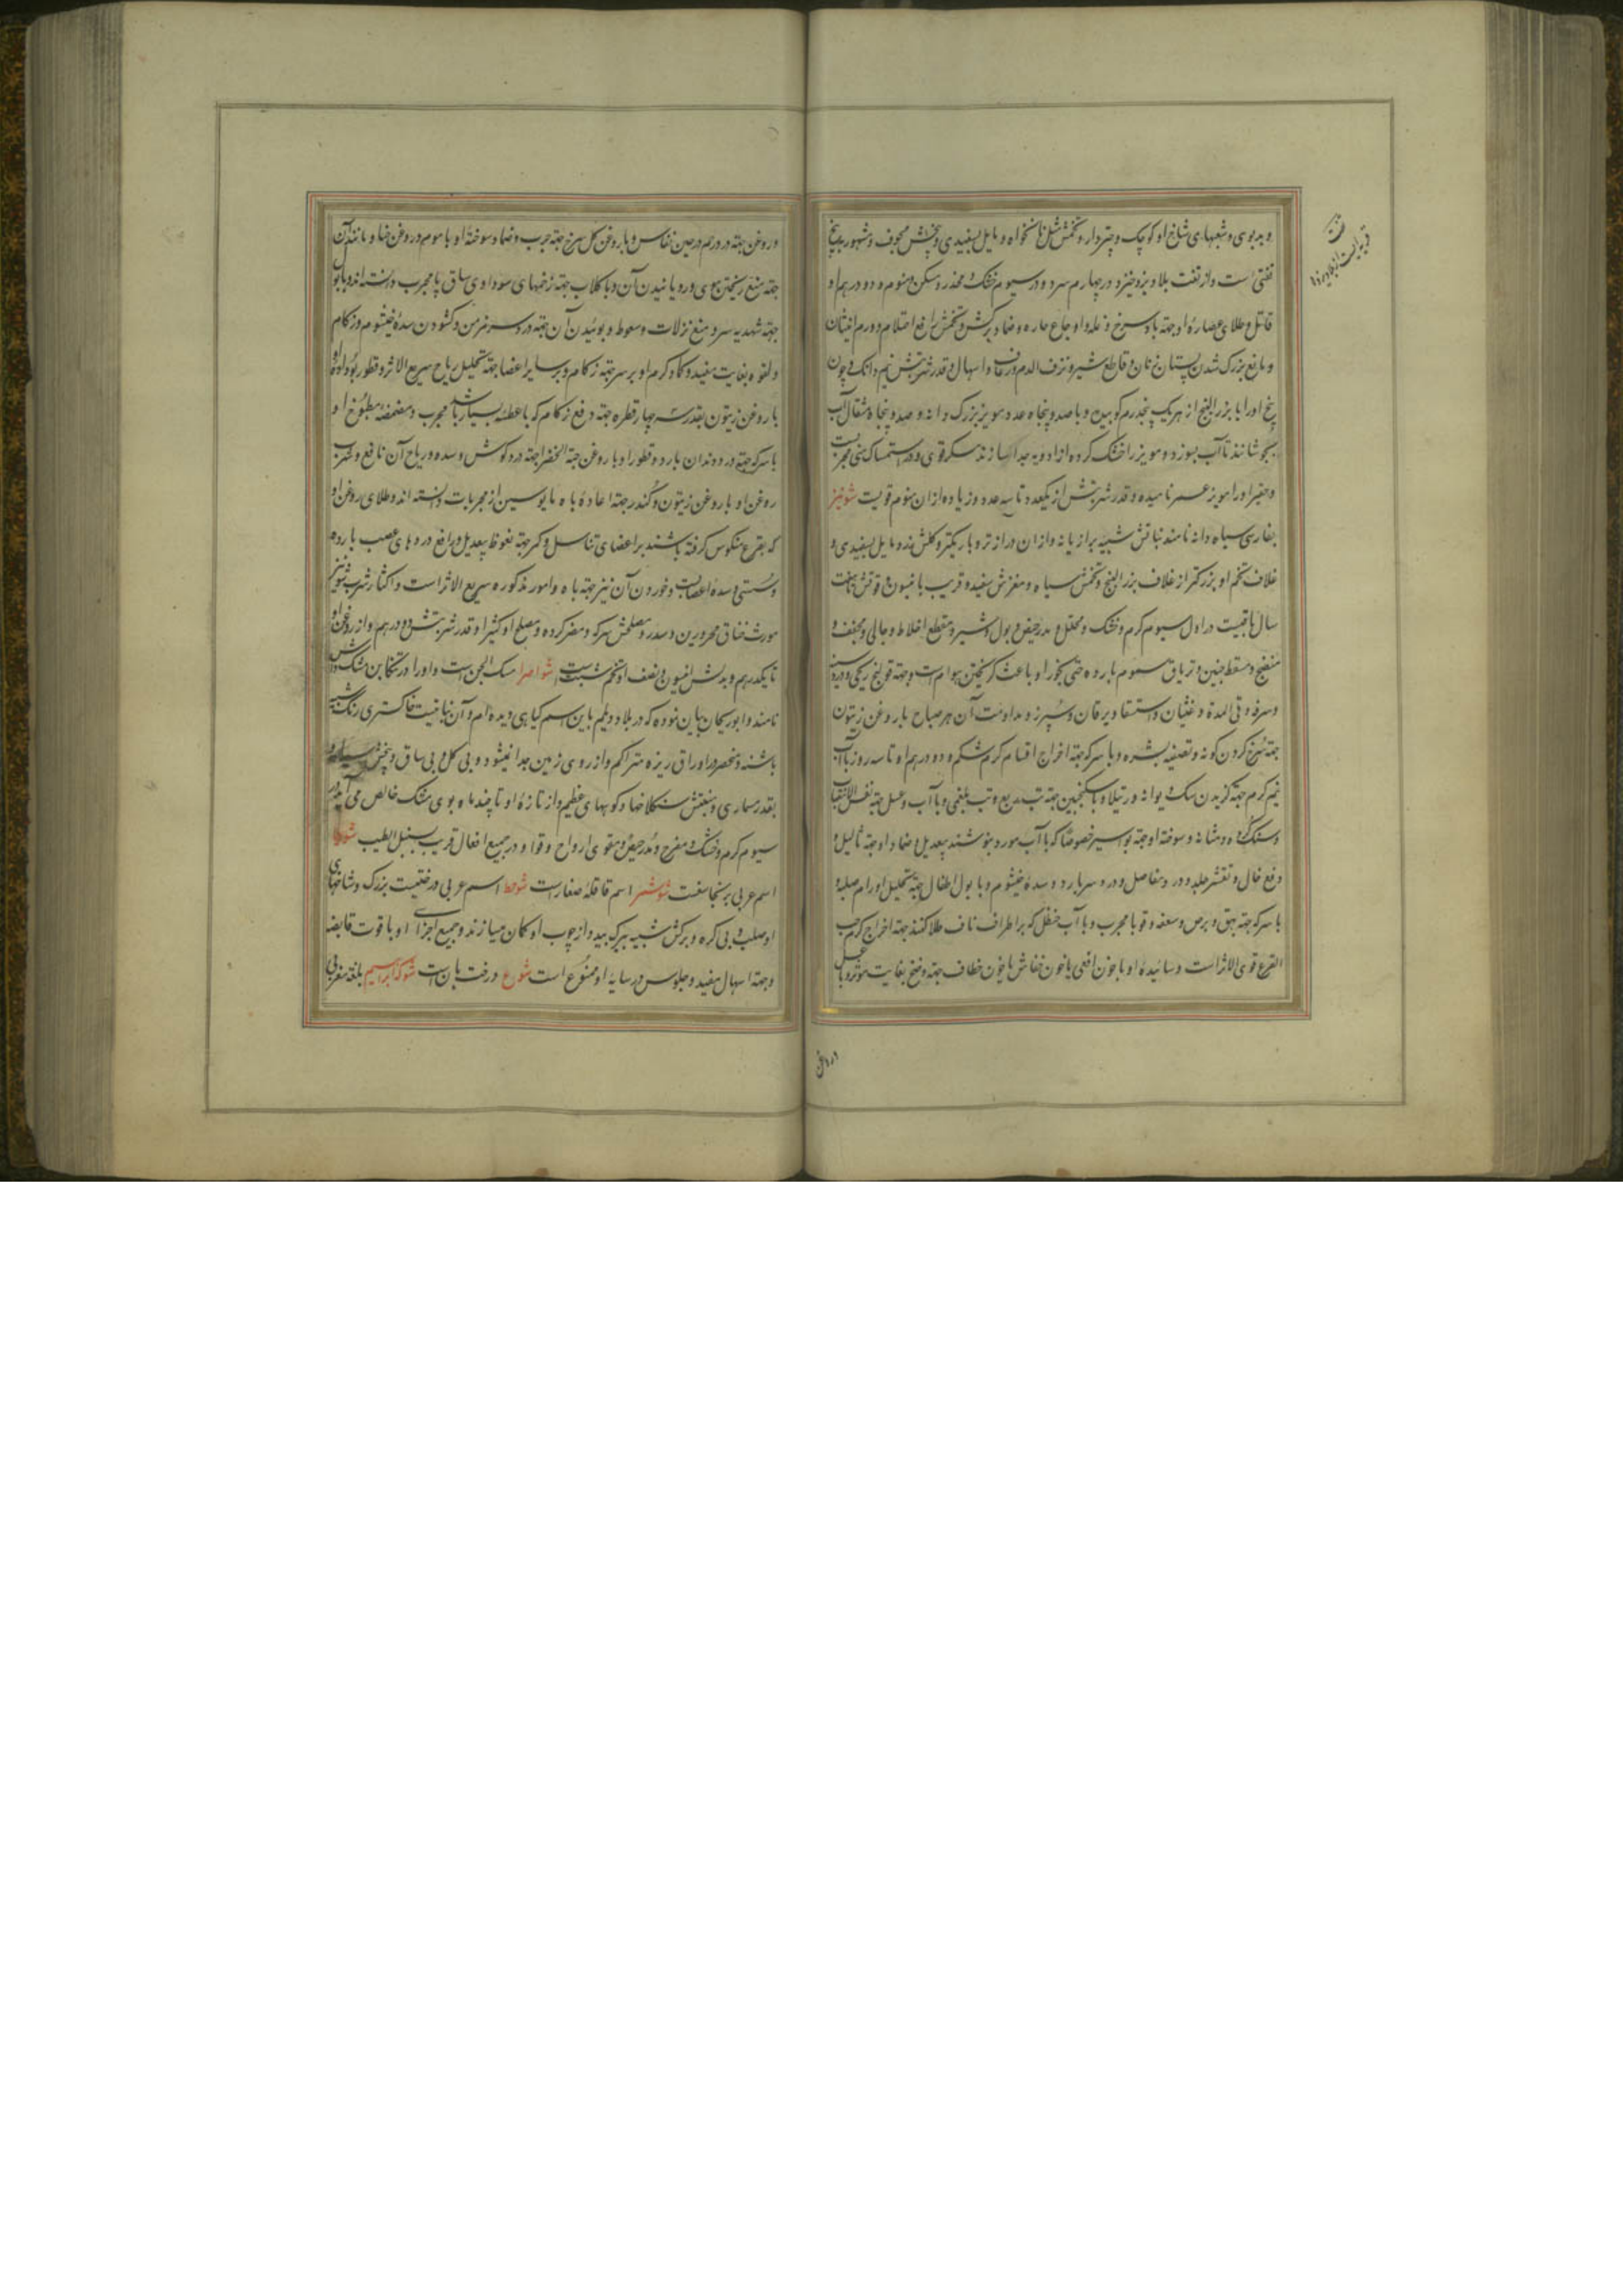 و بدبوی و شعبهای شاخ او کوچک و چتردار و تخمش مثل نانخواه و مایل بسفیدی و بیخش مجوف و مشهور به بیخ
تفتی است و از تفت بلاد یزد خیزد در چهارم سرد و در سیوم خشک و مخدر و مسکن و منوم و دو درهم او
قاتل و طلای عصارهٔ او جهة باد سرخ و نمله و اوجاع حاره و ضماد برکش و تخمش رافع احتلام و ورم انثیان
و مانع بزرک شدن پستان زنان و قاطع شیر و نزف الدم و رعاف و اسهال و قدر شربتش نیم دانک و چون
بیخ او را با بزر البنج از هر یک پنجدرم کوبیده و با صد و پنجاه عدد مویز بزرک دانه و صد و پنجاه مثقال آب
بجوشانند تا آب بسوزد و مویز را خشک کرده از ادویه جدا سازند مسکر قوی و در استمساک منی مجربست
و حقیر او را مویز عسر نامیده و قدر شربتش از یکعدد تا سه عدد و زیاده از ان منوم قویست شونیز
بفارسی سیاه دانه نامند نباتش شبیه برازیانه و از ان درازتر و باریکتر و کلش زرد مایل بسفیدی و
غلاف تخم او بزرکتر از غلاف بزر البنج و تخمش سیاه و مغزش سفید و قریب بانیسون و قوتش تا هفت
سال باقیست در اول سیوم کرم و خشک و محلل و مدر حیض و بول و شیر و مقطع اخلاط و جالی و مجفف و
منضج و مسقط جنین و تریاق سموم بارده حتی بخور او باعث کریختن هوام است و جهة قولنج ریحی و درد سینه
و سرفه و قی المدة و غثیان و استسقا و یرقان و سپرز و مداومت آن هر صباح با روغن زیتون
جهة سرخ کردن کونه و تصفیه بشره و با سرکه جهة اخراج اقسام کرم شکم و دو درهم او تا سه روز با آب
نیم کرم جهة کزیدن سک دیوانه و رتیلا و با سکنجبین جهة تب ربع و تب بلغمی و با آب و عسل جهة نفس الانتصاب
و سنک کرده و مثانه و سوخته او جهة بواسیر خصوصا که با آب مورد بنوشند بیعدیل و ضماد او جهة ثآلیل و
رفع خال و تقشر جلد و درد مفاصل و درد سر بارد و سدهٔ خیشوم و با بول اطفال جهة تحلیل اورام صلبه و
با سرکه جهة بهق و برص و سعفه و قوبا مجرب و با آب حنظل که بر اطراف ناف طلا کنند جهة اخراج کرم حب
القرع قوی الاثر است و سائیده او با خون افعی یا خون خفاش یا خون خطاف جهة وضح بغایت موثر و با عسل
و روغن جهة درد رحم در حین نفاس و با روغن کل سرخ جهة جرب و ضماد سوختهٔ او با موم و روغن حنا و مانند آن
جهة منع ریختن موی و رویانیدن آن و با کلاب جهة زخمهای سوداوی ساق پا مجرب دانسته اند و با بول
جهة شهدیه سر و منع نزلات و سعوط و بوئیدن آن جهة درد سر مزمن و کشودن سدهٔ خیشوم و زکام
و لقوه بغایت مفید و کماد کرم او بر سر جهة زکام و بر سایر اعضا جهة تحلیل ریاح سریع الاثر و قطور بودادهٔ او
با روغن زیتون بقدر سه چهار قطره جهة دفع زکام که با عطسهٔ بسیار باشد مجرب و مضمضه مطبوخ او
با سرکه جهة درد دندان بارد و قطور او با روغن حبة الخضرا جهة درد کوش و سده و ریاح آن نافع و مجرب
روغن او با روغن زیتون و کندر جهة اعادهٔ باه مایوسین از مجربات دانسته اند و طلای روغن او
که بقرع منکوس کرفته باشند بر اعضای تناسل و کمر جهة نعوظ بیعدیل و رافع دردهای عصب بارده
و سستی و سده اعصابست و خوردن آن نیز جهة باه و امور مذکوره سریع الاثر است و اکثار شرب شونیز
مورث خناق محرورین و سدر و مصلحش سرکه و مضر کرده و مصلح او کثیرا و قدر شربتش دو درهم و از روغن او
تا یکدرهم و بدلش انیسون و نصف او تخم شبت است شواصرا مسک الجن است و او را در تنکابن مشک وش
نامند و ابوریحان بیان نموده که در بلاد دیلم باین اسم کیاهی دیده ام و آن نباتیست خاکستری رنک شبیه
باشنه و منحصر در اوراق ریزه متراکم و از روی زمین جدا نمیشود و بی کل و بی ساق و بیخش سیاه و
بقدر مساری و منبتش سنکلاخها و کوبهای عظیم و از تازهٔ او تا چند ماه بوی مشک خالص می آید در
سیوم کرم و خشک و مفرح و مدر حیض و مقوی ارواح و قوا و در جمیع افعال قریب بسنبل الطیب
اسم عربی برنجاسفست شوشمر اسم قاقلهٔ صغار است شوحط اسم عربی درختیست بزرک و شاخهای
او صلب و بی کره و برکش شبیه ببرک بید و از چوب او کمان میسازند و جمیع اجزای او با قوت قابضه
و جهة اسهال مفید و جلوس در سایه او ممنوع است شوع درخت بان است شوکه ابراهیم بلغة مغربی